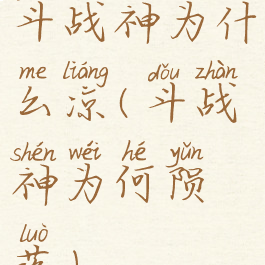 斗战神为什
me liáng dǒu zhàn
么凉(斗战
shén wéi hé yǔn
神为何陨
luò
落)